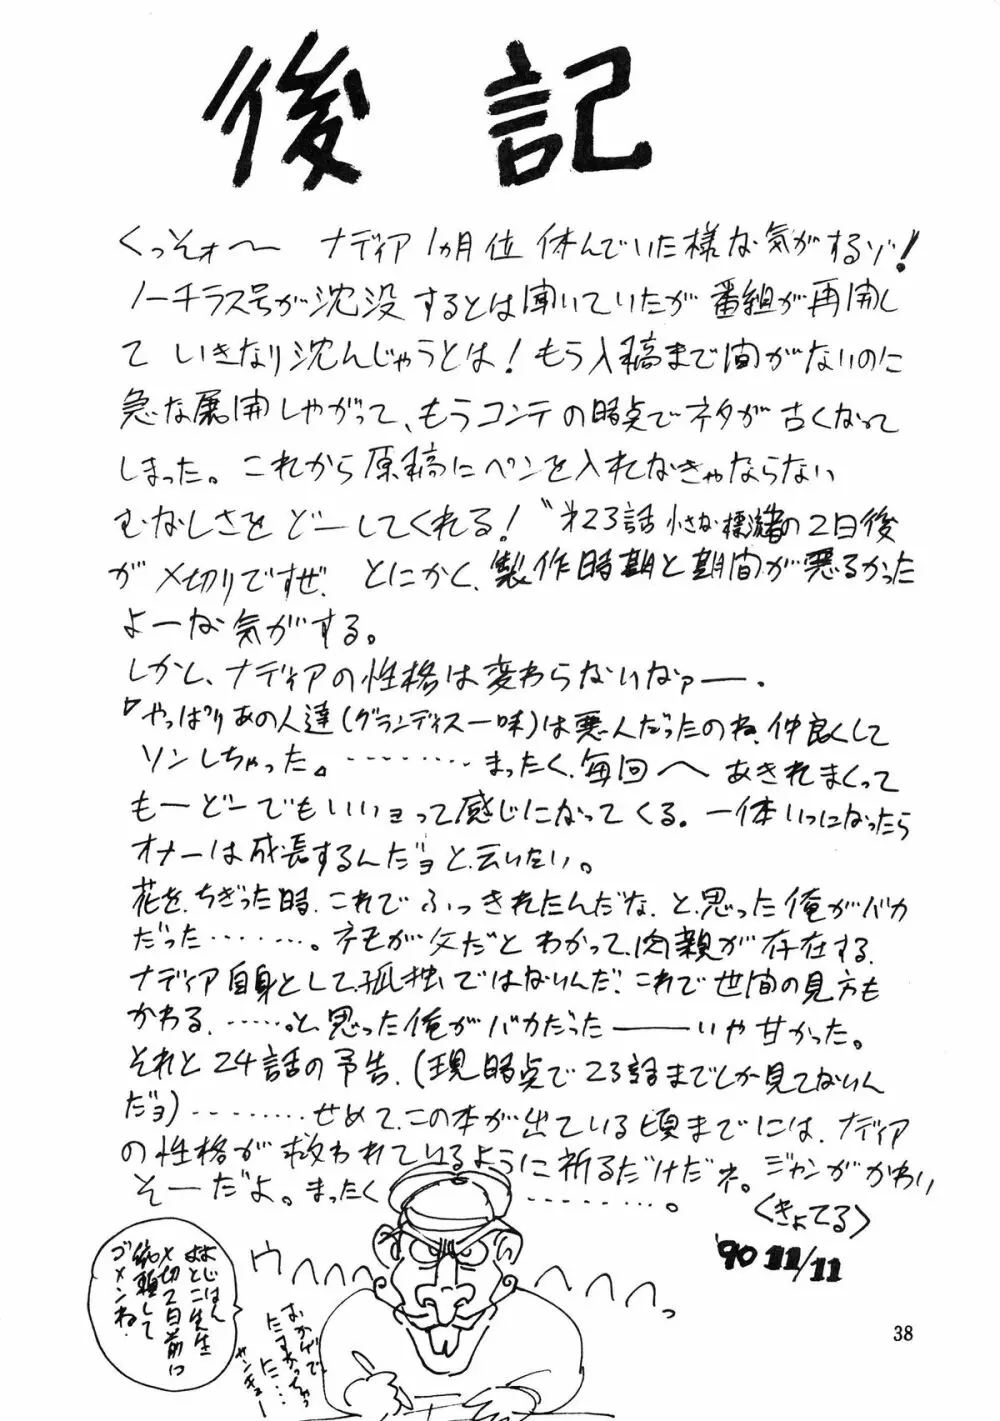 後記
くっそォ〜 ナディア1ヵ月位 休んでいた様な気がするゾ!
ノーチラス号が沈没するとは聞いていたが 番組が再開し
て いきなり沈んじゃうとは! もう入稿まで間がないのに
急な展開しやがって、もうコンテの時点でネタが古くなって
しまった。これから原稿にペンを入れなきゃならない
むなしさをどーしてくれる! 〝第23話 小さな漂流者の2日後
が〆切りですぜ. とにかく、製作時期と期間が悪るかった
よーな気がする。
しかし、ナディアの性格は変わらないなァー.
「やっぱりあの人達(グランディス一味)は悪人だったのね、仲良くして
ソンしちゃった。」‥‥‥‥ まったく、毎回へ あきれまくって
もーどーでもいいョって感じになってくる。一体いつになったら
オナーは成長するんだョと云いたい。
花を、ちぎった時、これでふっきれたんだな、と、思った俺がバカ
だった‥‥‥。ネモが父だとわかって、肉親が存在する、
ナディア自身として、孤独ではないんだ、これで世間の見方も
かわる、‥‥‥。と、思った俺がバカだった――いや甘かった。
それと24話の予告、(現時点で23話までしか見てないん
だョ)‥‥‥‥ せめて、この本が出ている頃までには、ナディア
の性格が救われているように祈るだけだネ。ジャンがかわい
そーだよ。まったく ‥‥‥‥。
〈きよてる〉
'90 11/11
よじはん
よとこ先生
〆切2日前に
依頼して
ゴメンね.
ウヘヘヘヘ ヘヘヘヘっ
おかげで、
たすかっちゃっ
た‥‥
サンキュー
38